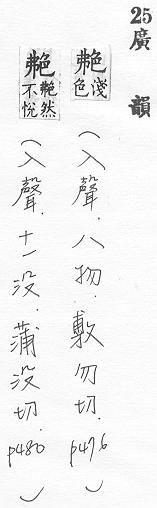 25廣韻
艴淺色(入聲.八物.敷勿切.p476)
艴艴然不悅(入聲.十一没.蒲没切.p480)